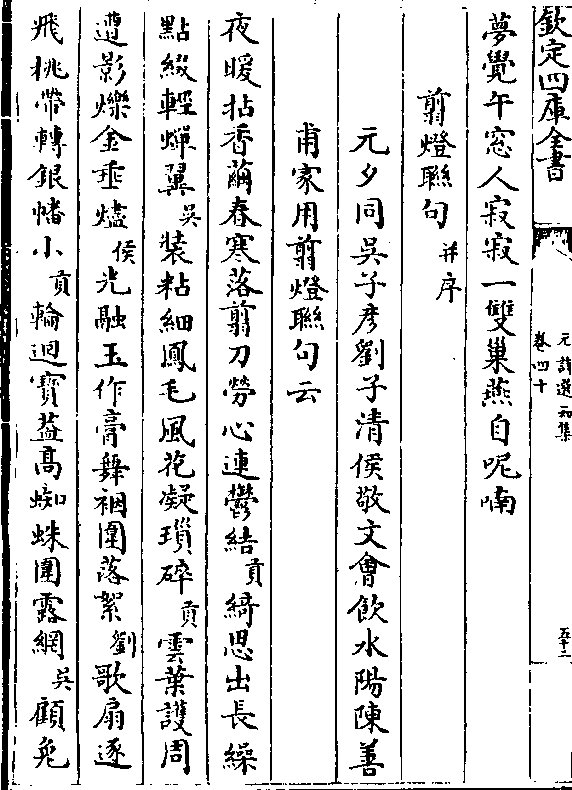 欽定四庫全書
元詩選初集
卷四十
五十二
夢覺午窓人寂寂一雙巢燕自呢喃
剪燈聯句并序
元夕同吳子彦劉子清侯敬文會飲水陽陳善
甫家用剪燈聯句云
夜暖拈香繭春寒落剪刀勞心連鬱結貢綺思出長繰
點綴輕蟬翼吳裝粘細鳳毛風花凝瑣碎貢雲葉護周
遭影爍金垂燼侯光融玉作膏舞裀圍落絮劉歌扇逐
飛桃帶轉銀幡小貢輪迴寶葢高蜘蛛圍露網吳顧兔